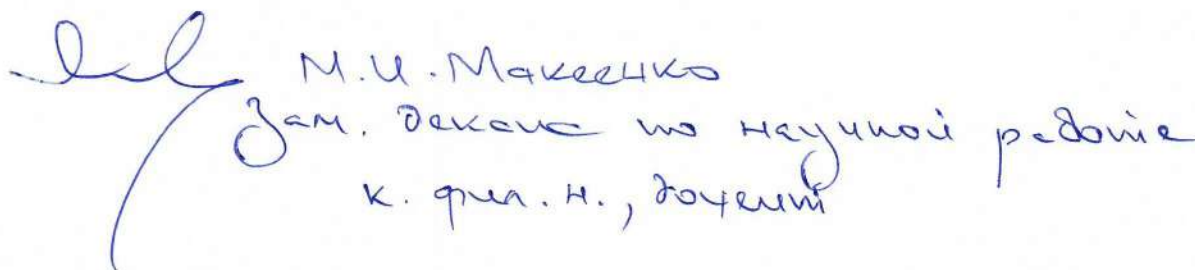 М.И. Макеенко
Зам. декана по научной работе
к. фил. н., доцент